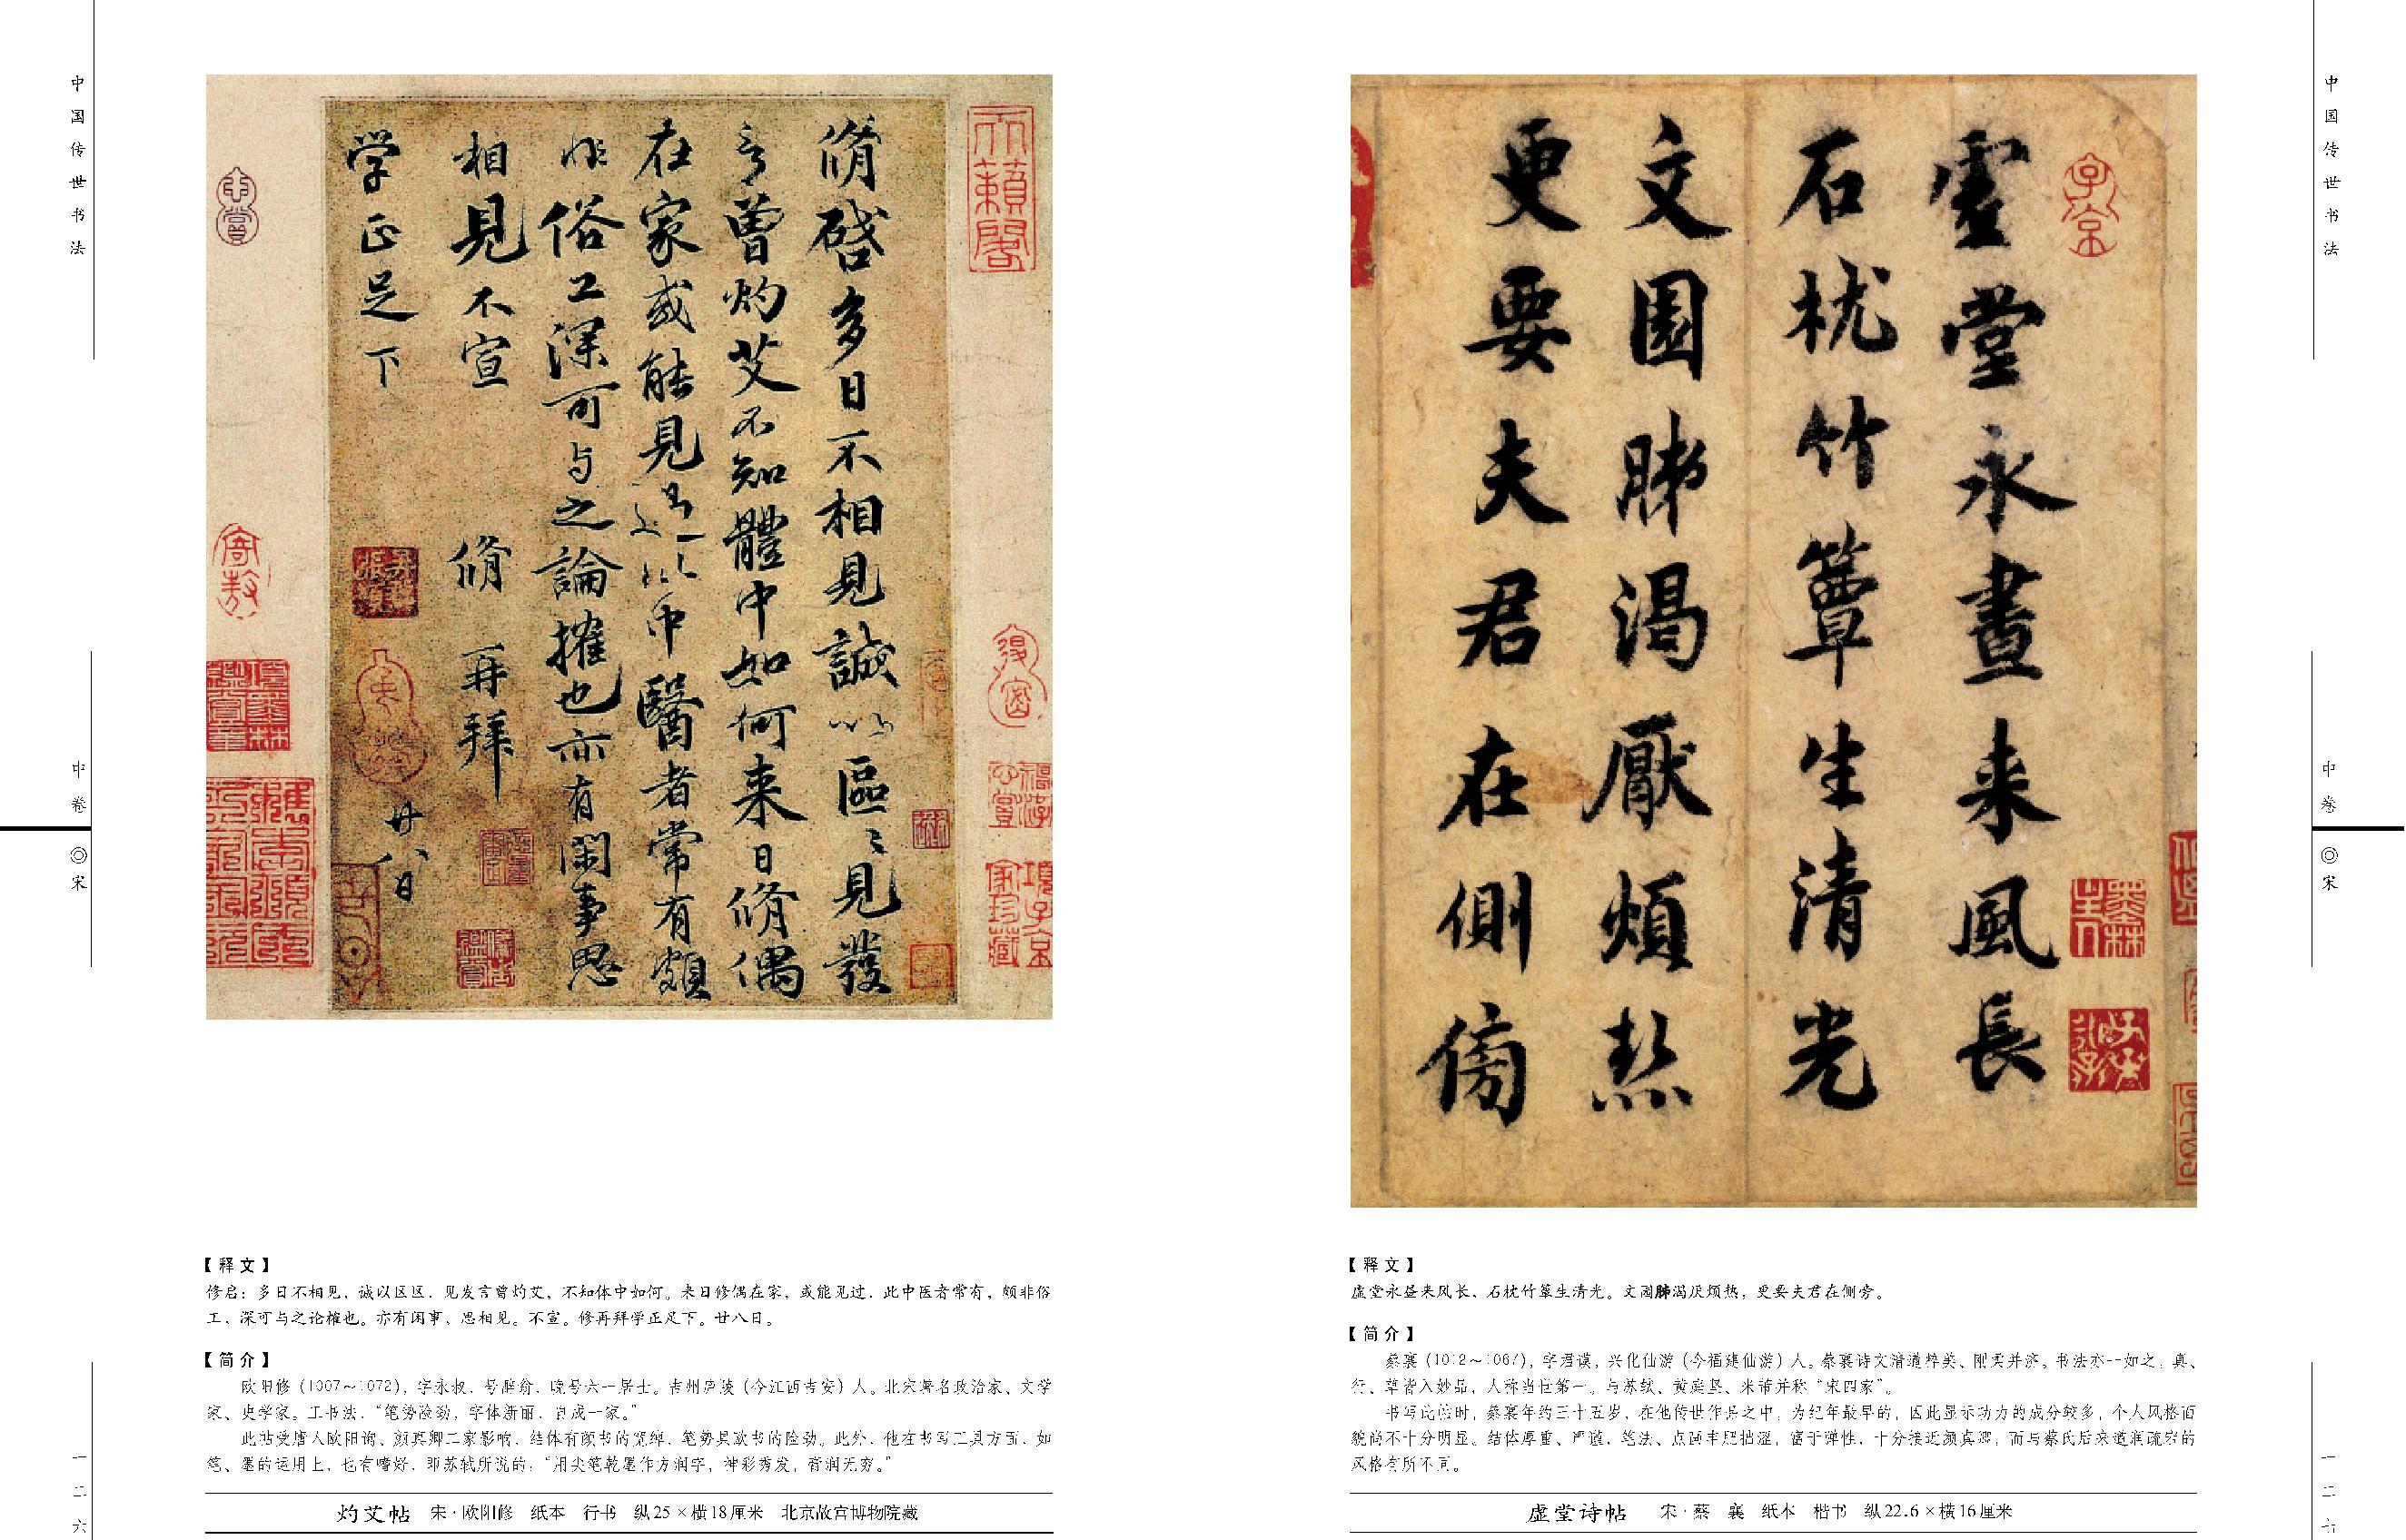 中国传世书法
中卷
◎宋
一二六
脩啓多日不相見誠以區〻見發
言曾灼艾不知體中如何来日脩偶
在家或能見過此中醫者常有頗
非俗工深可与之論搉也亦有閑事思
相見不宣 脩 再拜
学正足下 廿八日
天籟閣
【释文】
修启：多日不相见，诚以区区，见发言曾灼艾，不知体中如何。来日修偶在家，或能见过，此中医者常有，颇非俗
工，深可与之论榷也。亦有闲事，思相见。不宣。修再拜学正足下。廿八日。
【简介】
欧阳修（1007～1072），字永叔，号醉翁，晚号六一居士。吉州庐陵（今江西吉安）人。北宋著名政治家、文学
家、史学家。工书法，“笔势险劲，字体新丽，自成一家。”
此帖受唐人欧阳询、颜真卿二家影响，结体有颜书的宽绰，笔势具欧书的险劲。此外，他在书写工具方面，如
笔、墨的运用上，也有嗜好，即苏轼所说的：“用尖笔乾墨作方阔字，神彩秀发，膏润无穷。”
灼艾帖 宋·欧阳修 纸本 行书 纵25×横18厘米 北京故宫博物院藏
虚堂永晝来風長
石枕竹簟生清光
文園肺渴厭煩熱
更要夫君在側傍
子京
【释文】
虚堂永昼来风长，石枕竹簟生清光。文园肺渴厌烦热，更要夫君在侧旁。
【简介】
蔡襄（1012～1067），字君谟，兴化仙游（今福建仙游）人。蔡襄诗文清遒粹美、刚柔并济。书法亦一如之，真、
行、草皆入妙品，人称当世第一。与苏轼、黄庭坚、米芾并称“宋四家”。
书写此帖时，蔡襄年约三十五岁，在他传世作品之中，为纪年最早的，因此显示功力的成分较多，个人风格面
貌尚不十分明显。结体厚重、严谨，笔法、点画丰肥拙涩，富于弹性，十分接近颜真卿，而与蔡氏后来遒润疏宕的
风格有所不同。
虚堂诗帖 宋·蔡 襄 纸本 楷书 纵22.6×横16厘米
中国传世书法
中卷
◎宋
一二七